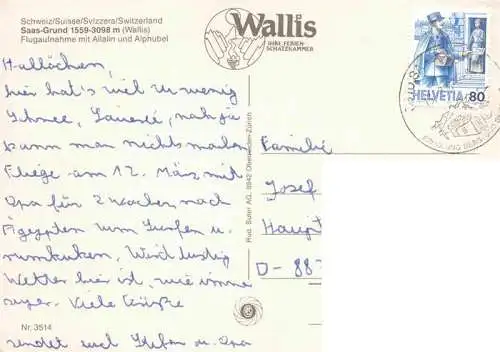 Schweiz/Suisse/Svizzera/Switzerland
Saas-Grund 1559-3098 m (Wallis)
Flugaufnahme mit Allalin und Alphubel
Wallis
IHRE FERIEN-
SCHATZKAMMER
HELVETIA 80
Hallöchen,
hier hat's viel zu wenig
Schnee, Sauerei, naja
kann man nichts machen
Fliege am 12. März mit
Opa für 2 Wochen nach
Ägypten zum Surfen u.
rumkuken. Wird lustig
Wetter hier ist, wie immer
super. Viele Grüße
sendet euch Stefan u. Opa
Familie
Josef
Haupt
D-88
Rud. Suter AG, 8942 Oberrieden-Zürich
Nr. 3514